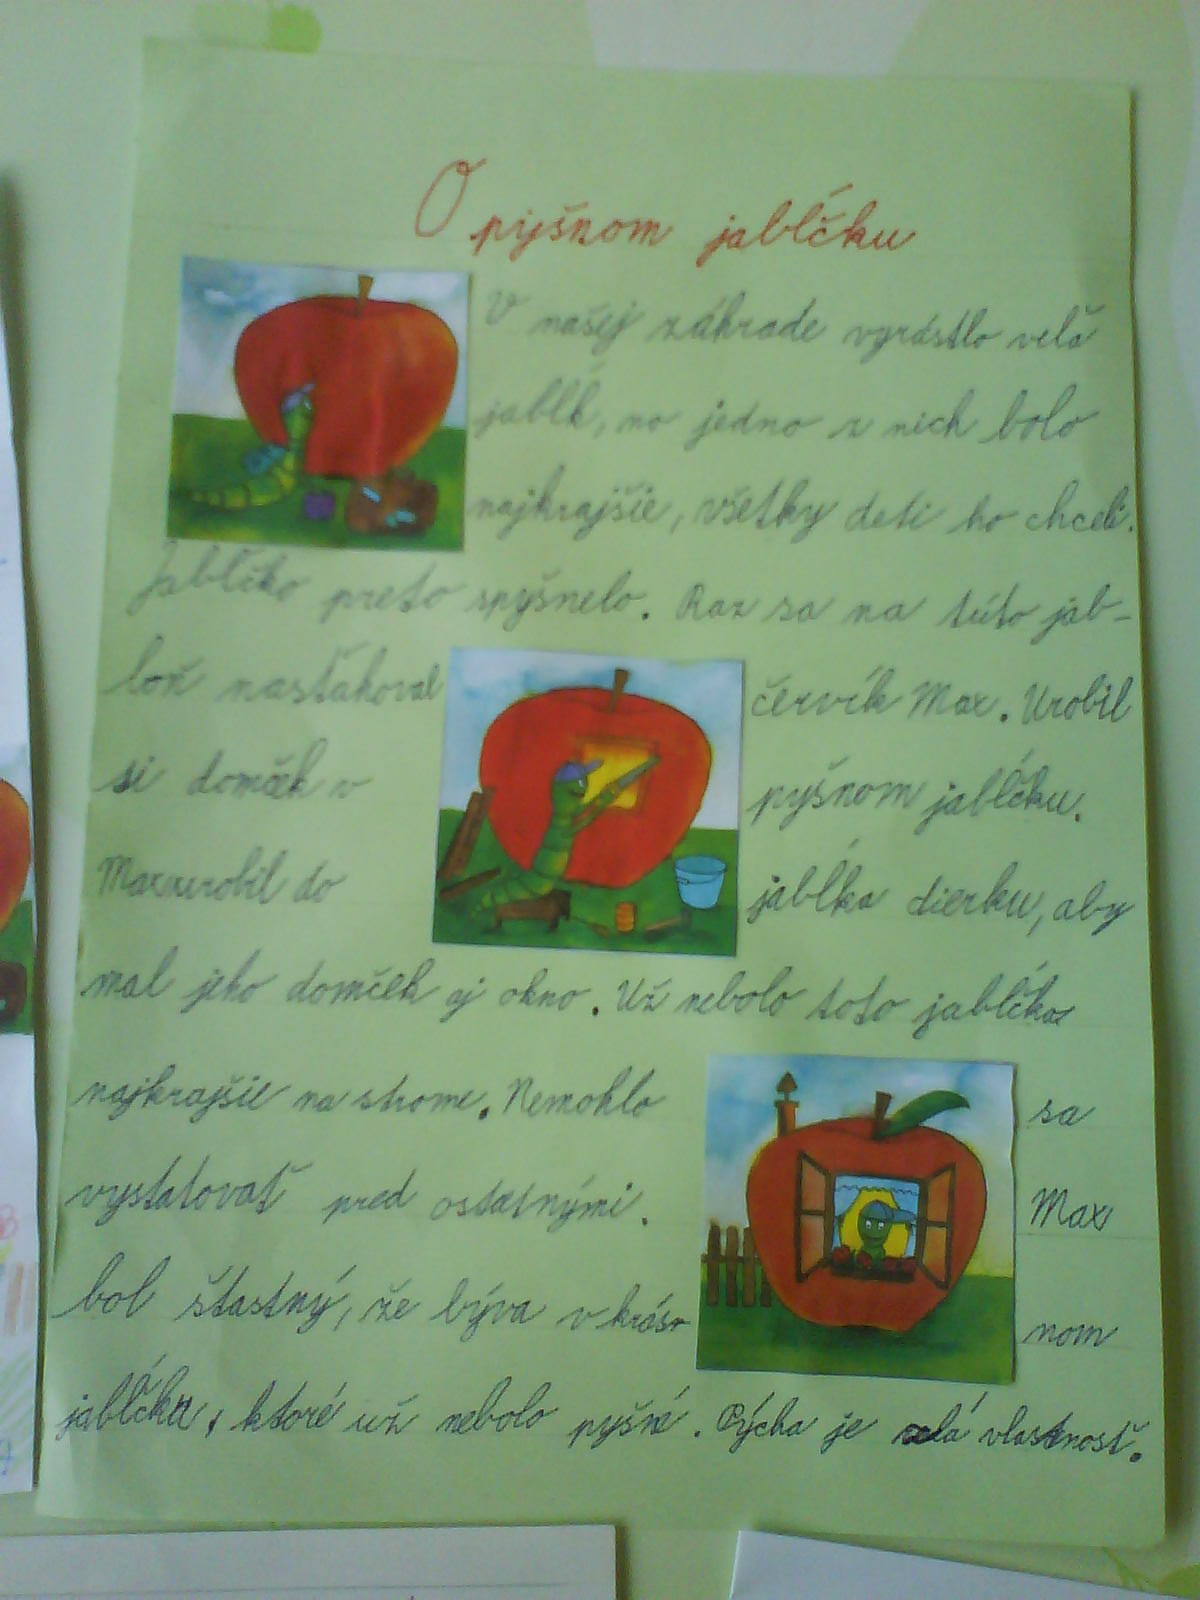 O pyšnom jabĺčku
V našej záhrade vyrástlo veľa
jabĺk, no jedno z nich bolo
najkrajšie, všetky deti ho chceli.
Jabĺčko preto spyšnelo. Raz sa na túto jab-
loň nasťahoval červík Max. Urobil
si domček v pyšnom jabĺčku.
Max urobil do jabĺka dierku, aby
mal jeho domček aj okno. Už nebolo toto jabĺčko
najkrajšie na strome. Nemohlo sa
vystatovať pred ostatnými. Max
bol šťastný, že býva v krás- nom
jabĺčku, ktoré už nebolo pyšné. Pýcha je zlá vlastnosť.